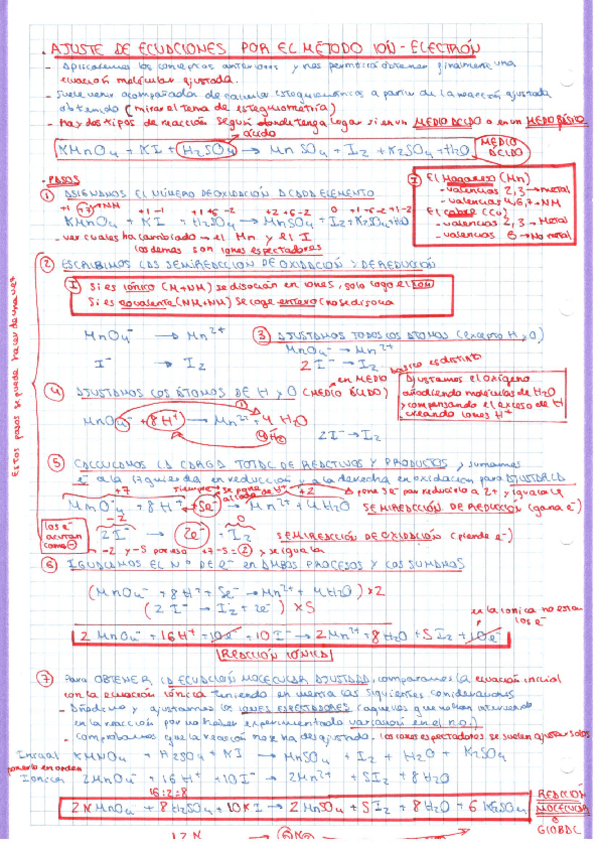 . AJUSTE DE ECUACIONES POR EL MÉTODO IÓN-ELECTRÓN
- Aplicaremos los conceptos anteriores y nos permitirá obtener finalmente una
ecuación molecular ajustada.
- Suele venir acompañada de cálculos estequiométricos a partir de la reacción ajustada
obtenida (mirar el tema de estequiometría)
- Hay dos tipos de reacción según donde tenga lugar si en un MEDIO ÁCIDO o en un MEDIO BÁSICO
ácido
KMnO4 + KI + H2SO4 → MnSO4 + I2 + K2SO4 + H2O
MEDIO ÁCIDO
. PASOS
① ASIGNAMOS EL NÚMERO DE OXIDACIÓN A CADA ELEMENTO
KMnO4 + KI + H2SO4 → MnSO4 + I2 + K2SO4 + H2O
- ver cuales ha cambiado → el Mn y el I
(ademas son iones espectadores
El Manganeso (Mn)
- valencias 2, 3 → metal
- valencias 4, 6, 7 → NM
- valencias 2, 3 → Metal
- valencias 6 → No metal
② ESCRIBIMOS LAS SEMIREACCION DE OXIDACIÓN Y DE REDUCCIÓN
Si es iónico (M+NM) se disocia en iones, solo cogo el ion
Si es covalente (NM+NM) se coge entero (no se disocia
MnO4⁻ → Mn²⁺
I⁻ → I2
③ AJUSTAMOS TODOS LOS ÁTOMOS (excepto H y O)
MnO4⁻ → Mn²⁺
2I⁻ → I2
básico es distinto
④ AJUSTAMOS LOS ÁTOMOS DE H y O (en MEDIO ÁCIDO)
Ajustamos el oxígeno
añadiendo moléculas de H2O
y compensando el exceso de H
creando iones H⁺
MnO4⁻ + 8H⁺ → Mn²⁺ + 4H2O
2I⁻ → I2
Estos pasos se puede hacer de una vez
⑤ CALCULAMOS LA CARGA TOTAL DE REACTIVOS Y PRODUCTOS y sumamos
e⁻ a la izquierda en reducción y a la derecha en oxidación para AJUSTARLA
MnO4⁻ + 8H⁺ + 5e⁻ → Mn²⁺ + 4H2O
SEMIREACCIÓN DE REDUCCIÓN (gana e⁻)
2I⁻ - 2e⁻ → I2
SEMIREACCIÓN DE OXIDACIÓN (pierde e⁻)
⑥ IGUALAMOS EL Nº DE e⁻ EN AMBOS PROCESOS Y LOS SUMAMOS
(MnO4⁻ + 8H⁺ + 5e⁻ → Mn²⁺ + 4H2O) x2
(2I⁻ → I2 + 2e⁻) x5
en la ionica no estan
los e⁻
2MnO4⁻ + 16H⁺ + 10e⁻ + 10I⁻ → 2Mn²⁺ + 8H2O + 5I2 + 10e⁻
REACCIÓN IÓNICA
⑦ Para OBTENER LA ECUACIÓN MOLECULAR AJUSTADA, comparamos la ecuación inicial
con la ecuación iónica teniendo en cuenta las siguientes consideraciones
- Añadimos y ajustamos los IONES ESPECTADORES (aquellos que no han intervenido
en la reacción por no haber experimentado variación en el n.o.)
- Comprobamos que la reacción no se ha desajustado. los iones espectadores se suelen ajustar solos
Inicial KMnO4 + H2SO4 + KI → MnSO4 + I2 + H2O + K2SO4
ponerlo en orden
Ionica 2MnO4⁻ + 16H⁺ + 10I⁻ → 2Mn²⁺ + 5I2 + 8H2O
16:2=8
2KMnO4 + 8H2SO4 + 10KI → 2MnSO4 + 5I2 + 8H2O + 6K2SO4
REACCIÓN
MOLECULAR
o
GLOBAL